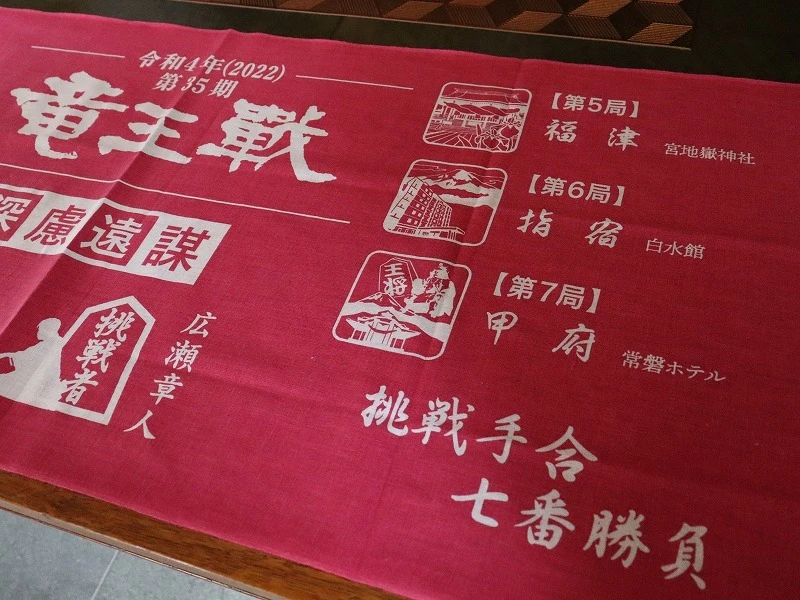 令和4年(2022)
第35期
竜王戰
深慮遠謀
挑戦者
広瀬章人
【第5局】
福津 宮地嶽神社
【第6局】
指宿 白水館
【第7局】
王将
甲府 常磐ホテル
挑戦手合
七番勝負